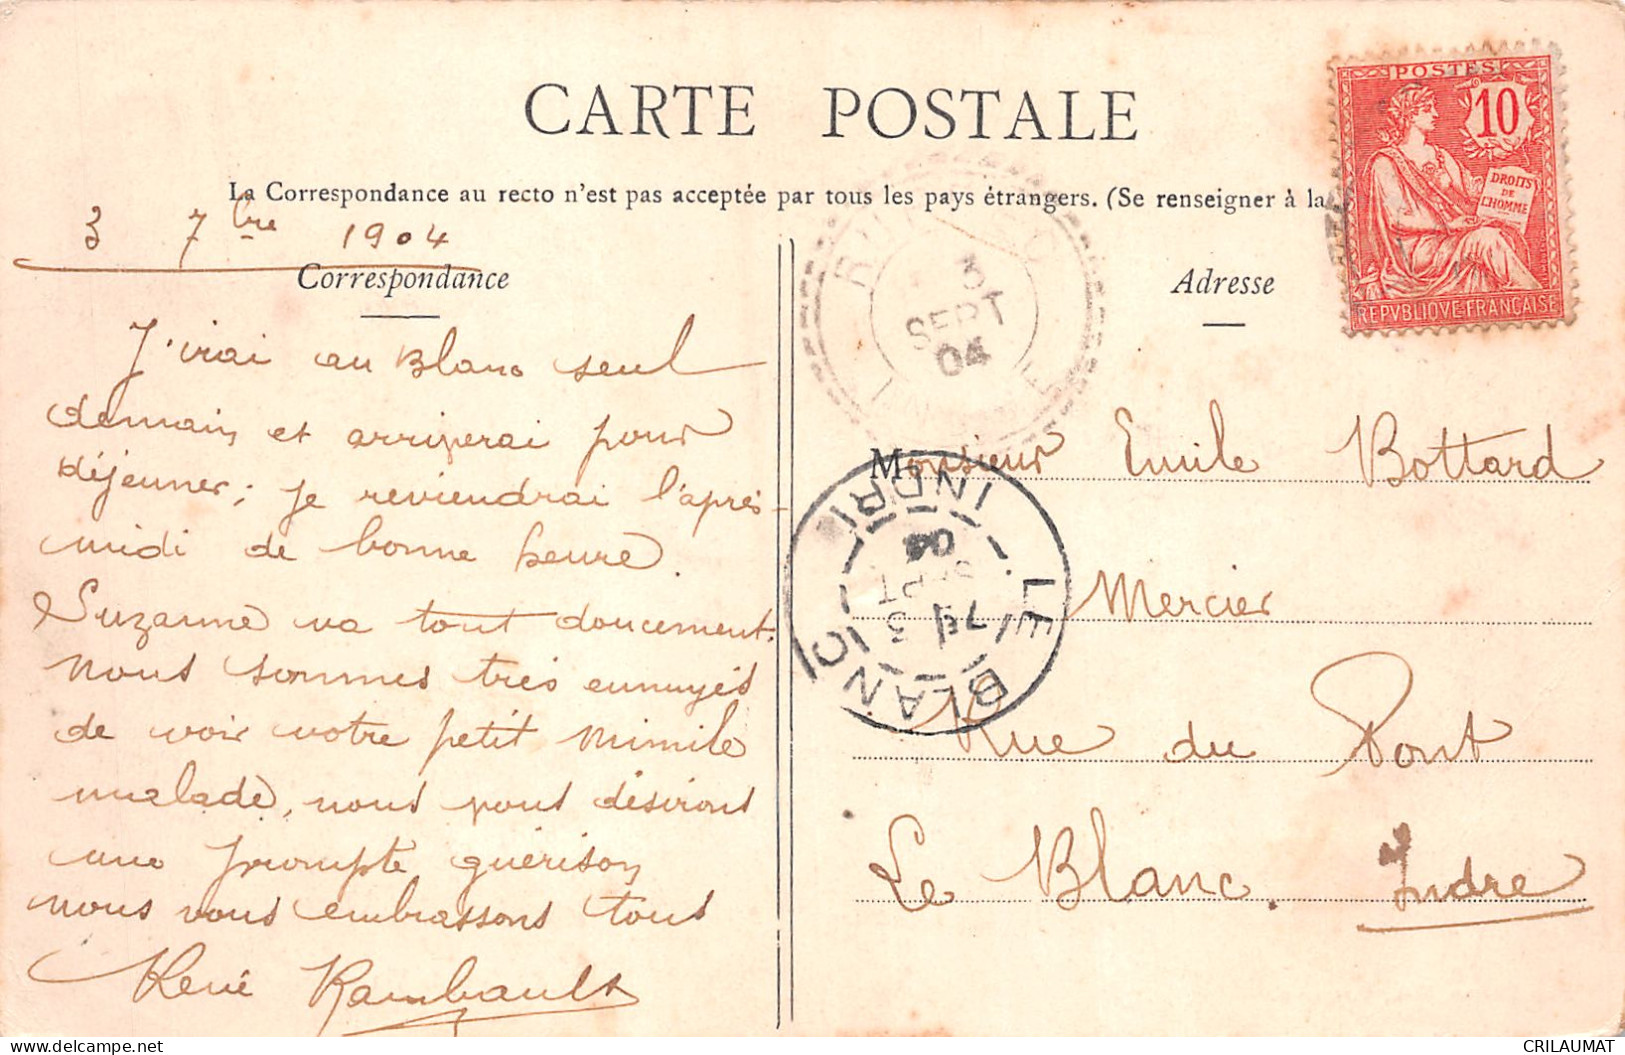 CARTE POSTALE
La Correspondance au recto n'est pas acceptée par tous les pays étrangers. (Se renseigner à la
3 7bre 1904
Correspondance
J'irai au Blanc seul
demain et arriverai pour
déjeuner; je reviendrai l'après-
midi de bonne heure.
Suzanne va tout doucement.
nous sommes très ennuyés
de voir votre petit Mimile
malade, nous vous désirons
une prompte guérison
nous vous embrassons tous
René Rambault
Adresse
Monsieur Emile Bottard
Mercier
Rue du Pont
Le Blanc. Indre
POSTES
10
DROITS
DE
L'HOMME
REPVBLIQVE FRANÇAISE
3
SEPT
04
LE BLANC
INDRE
3
SEPT
04
www.delcampe.net
CRILAUMAT